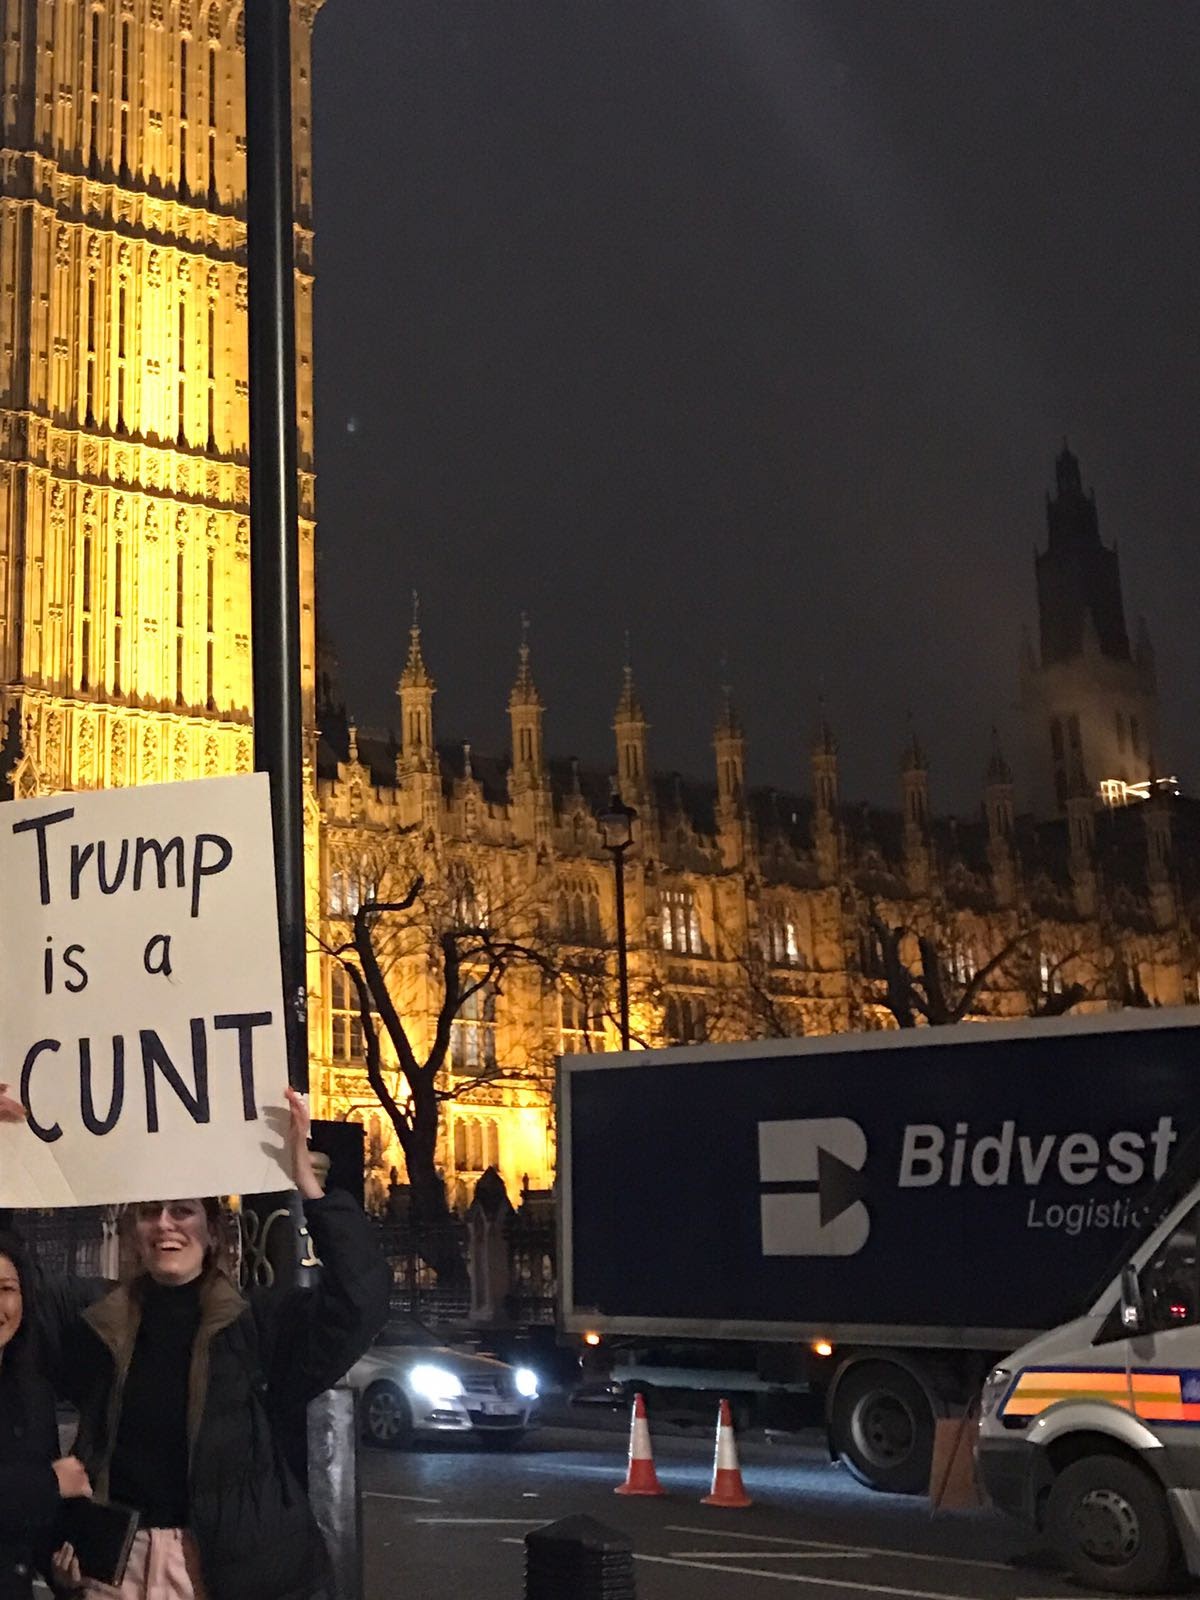 Trump
is a
CUNT
Bidvest
Logistic